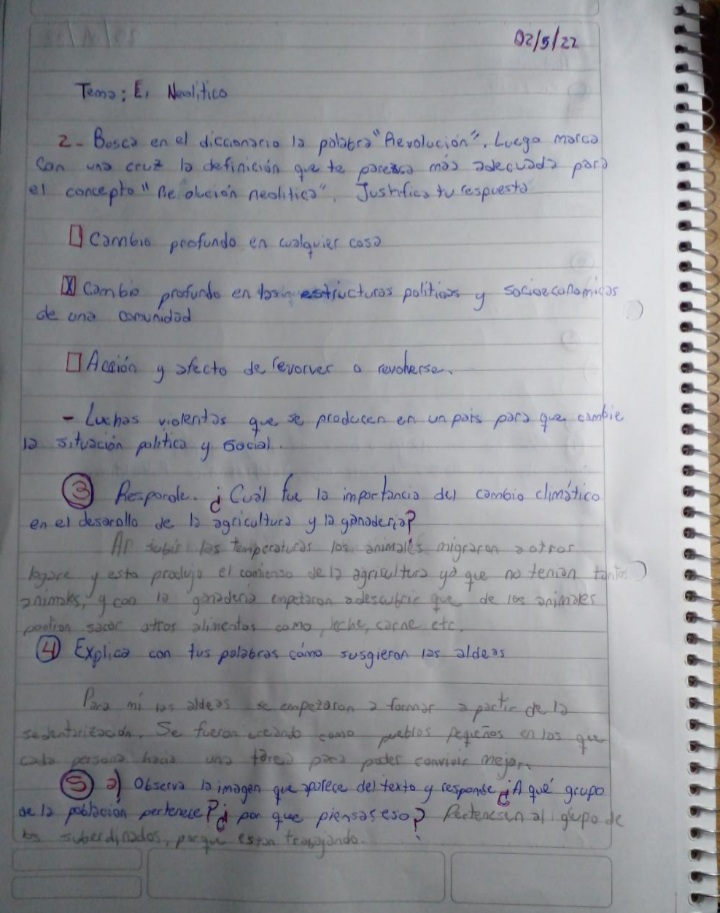 02/5/22
Tema: El Neolitico
2- Busca en el diccionario la palabra "Revolución". Luego marca
con una cruz la definición que te parezca más adecuada para
el concepto "Revolución neolitica". Justifica tu respuesta
Cambio profundo en cualquier cosa
X Cambio profundo en las estructuras politicas y socioeconomicas
de una comunidad
Acción y afecto de revorver o revolverse.
- Luchas violentas que se producen en un pais para que cambie
la situación politica y social.
3 Responde. ¿Cuál fue la importancia del cambio climático
en el desarollo de la agricultura y la ganaderia?
Al subir las temperaturas los animales migraron a otros
y esto produjo el comienso de la agricultura ya que no tenian tantos
animales, y con la ganaderia empezaron a descubrir que de los animales
podian sacar otros alimentos como, leche, carne etc.
4 Explica con tus palabras cómo susgieron las aldeas
Para mi las aldeas se empezaron a formar a partir de la
sedentarización. Se fueron creando como pueblos pequeños en los que
cada persona hacia una tarea para poder convivir mejor.
5 a) Observa la imagen que aparece del texto y responde ¿A qué grupo
de la poblacion pertenece? ¿por que piensas eso? Pertenesen al grupo de
los suberdinados, porque estan trabajando.